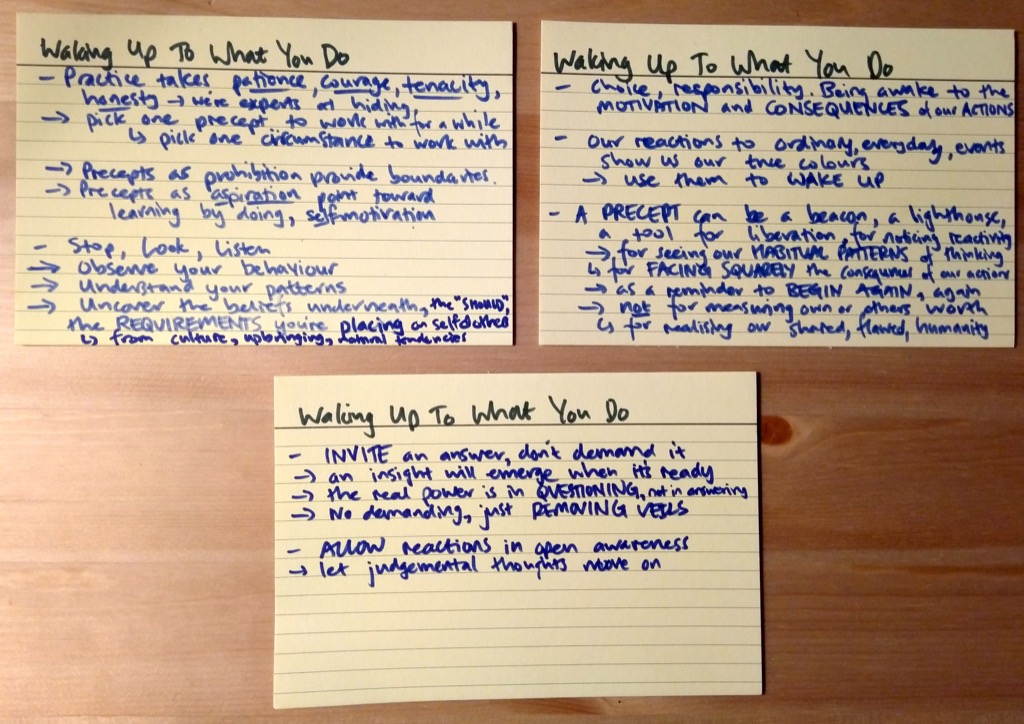 Waking Up To What You Do
- Practice takes patience, courage, tenacity,
honesty → we're experts at hiding
→ pick one precept to work with for a while
↳ pick one circumstance to work with
→ Precepts as prohibition provide boundaries.
→ Precepts as aspiration point toward
learning by doing, selfmotivation
- Stop, Look, Listen
→ Observe your behaviour
→ Understand your patterns
→ Uncover the beliefs underneath, the "SHOULD",
the REQUIREMENTS you're placing on self & other
↳ from culture, upbringing, natural tendencies
Waking Up To What You Do
- Choice, responsibility. Being awake to the
MOTIVATION and CONSEQUENCES of our ACTIONS
- Our reactions to ordinary, everyday, events
show us our true colours
→ use them to WAKE UP
- A PRECEPT can be a beacon, a lighthouse,
a tool for liberation, for noticing reactivity
→ for seeing our HABITUAL PATTERNS of thinking
↳ for FACING SQUARELY the consequences of our action
→ as a reminder to BEGIN AGAIN, again
→ not for measuring own or others worth
↳ for realising our shared, flawed, humanity
Waking Up To What You Do
- INVITE an answer, don't demand it
→ an insight will emerge when it's ready
→ the real power is in QUESTIONING, not in answering
→ No demanding, just REMOVING VEILS
- ALLOW reactions in open awareness
→ let judgemental thoughts move on